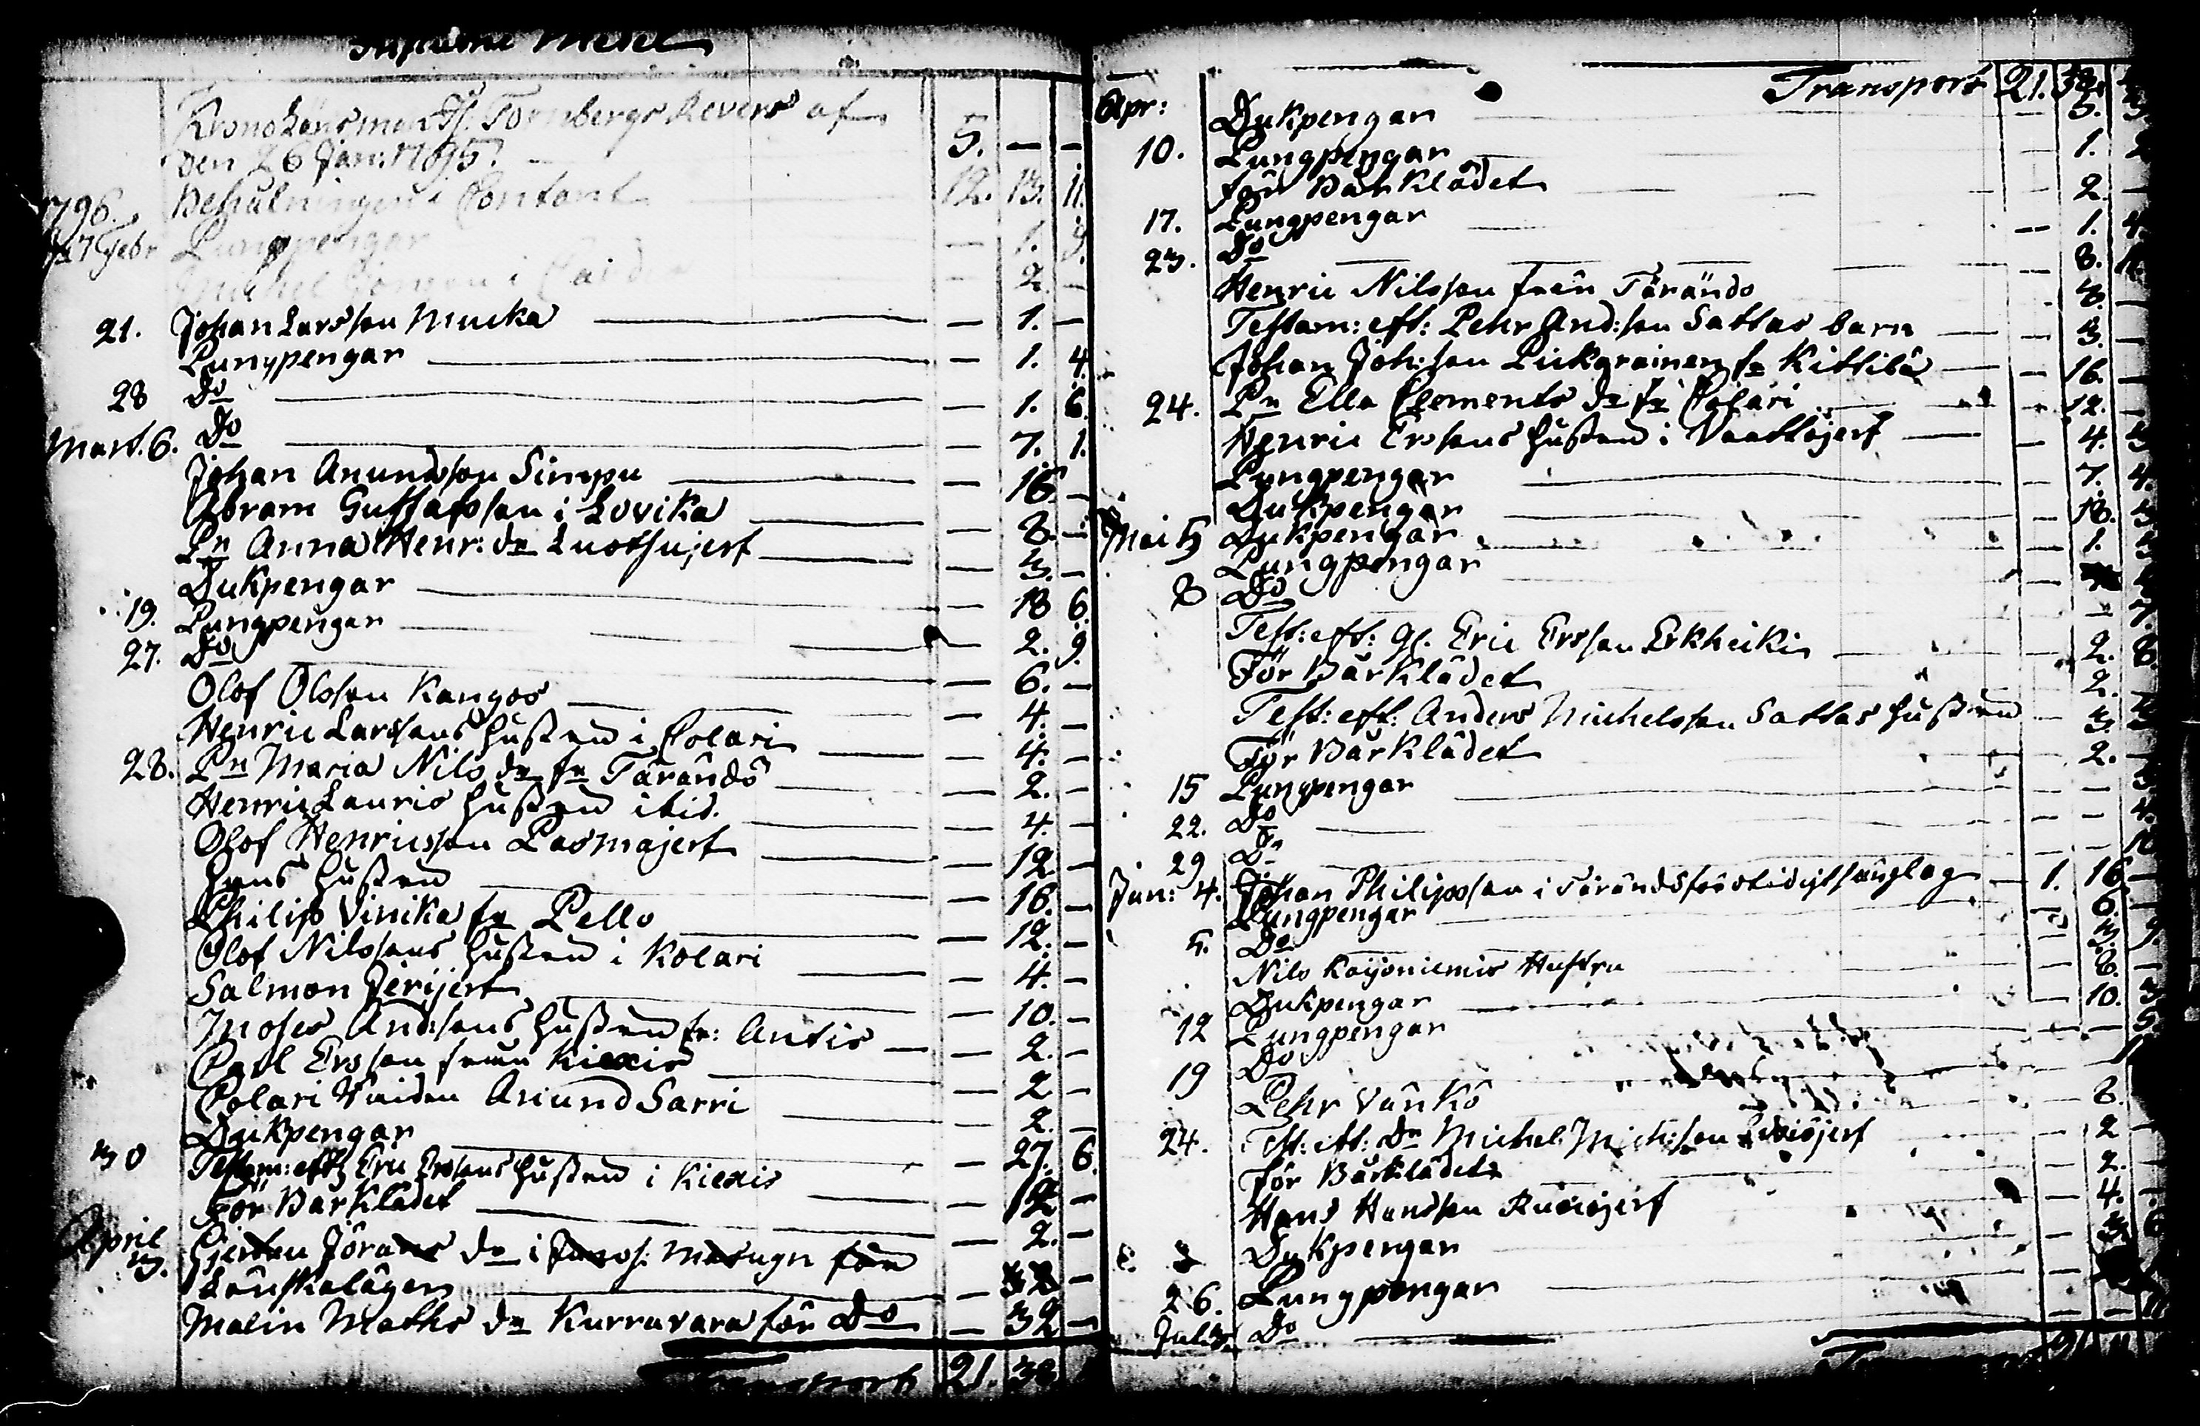 Medel
Krono Länsman Js. Fornbergs Revers af
den 26 Jan: 1795. 5. — —
1796. Behålningen i Contant 12. 13. 11.
17 Febr Pungpengar — 1. 9.
Michel — 2. —
21. Johan Larsson Mucka — 1. —
Pungpengar — 1. 4.
28 Do — 1. 6.
Mart. 6. Do — 7. 1.
Johan Anundsson Simpu — 16. —
Abram Gustafsson i Lovika — 8. —
Pn Anna Henr: dr Luosujerf — 3. —
Dukpengar — 18 6.
19. Pungpengar — 2. 9.
27. Do — 6. —
Olof Olsson Kangos — 4. —
Henric Larssons hustru i Colari — 4. —
28. Pn Maria Nils dr fr Tärändö — 2. —
Henric Lauris hustru ibid. — 4. —
Olof Henricsson Pasmajerf — 12 —
Hans hustru — 16. —
Philip Vinika fr Pello — 12. —
Olof Nilssons hustru i Kolari — 4. —
Salmon Jerijerf — 10. —
Moses And:sons hustru fr: Antis — 2. —
Carl Ersson från Kiexis — 2 —
Colari Anund Sarri — 2. —
Dukpengar — 27. 6.
30 Testam: efter Eric Erssons hustru i Kiexis — 12 —
För Bårklädet — 2. —
April 3. Jörans dr i för
Länskalägen — 32 —
Malin Matts dr Kurravara för Do — 32 —
Transport 21. 38
Transport 21. 38.
Apr: Dukpengar — 5. 3.
10. Pungpengar — 1. 2
för Bårklädet — 2. —
17. Pungpengar — 1. 4.
23. Do — 8.
Henric Nilsson från Tärändö — 8. —
Testam: eft: Pehr And:son Sattas barn — 3. —
Johan Joh:son Liikavainen fr Kittilä — 16. —
24. Pn Ella Clements dr fr Colari — 12. —
Henric Erssons hustru i Vaettojerf — 4. 3
Pungpengar — 7. 4.
Dukpengar — 18. 3
Mai 5 Dukpengar — 1. 3
Pungpengar —
8 Do — — 7.
Test: eft: Gl. Eric Ersson Erkheiki — 2. 8.
För Bårklädet — 2.
Test: eft: Anders Michelsson Sattas hustru — 3.
För Bårklädet — 2. —
15 Pungpengar — —
22. Do — — 4.
29 Do — — 10
Jun: 4. Johan Philipsson i Tärändö för tidigt sänglag — 1. 16 —
Pungpengar — 6. —
5. Do — 3. 9.
Nils Koijoniemis Hustru — 8. —
Dukpengar — 10. 3
12 Pungpengar — — 5
19 Do
Pehr Vänkö — 8.
24. Test: eft: Dr Michel Mich:son — 2
för Bårklädet — 2.
Hans Hansson Rusiojerf — 4. —
Dukpengar — 3. 6
26. Pungpengar
Jul. 3 Do — — 11
21